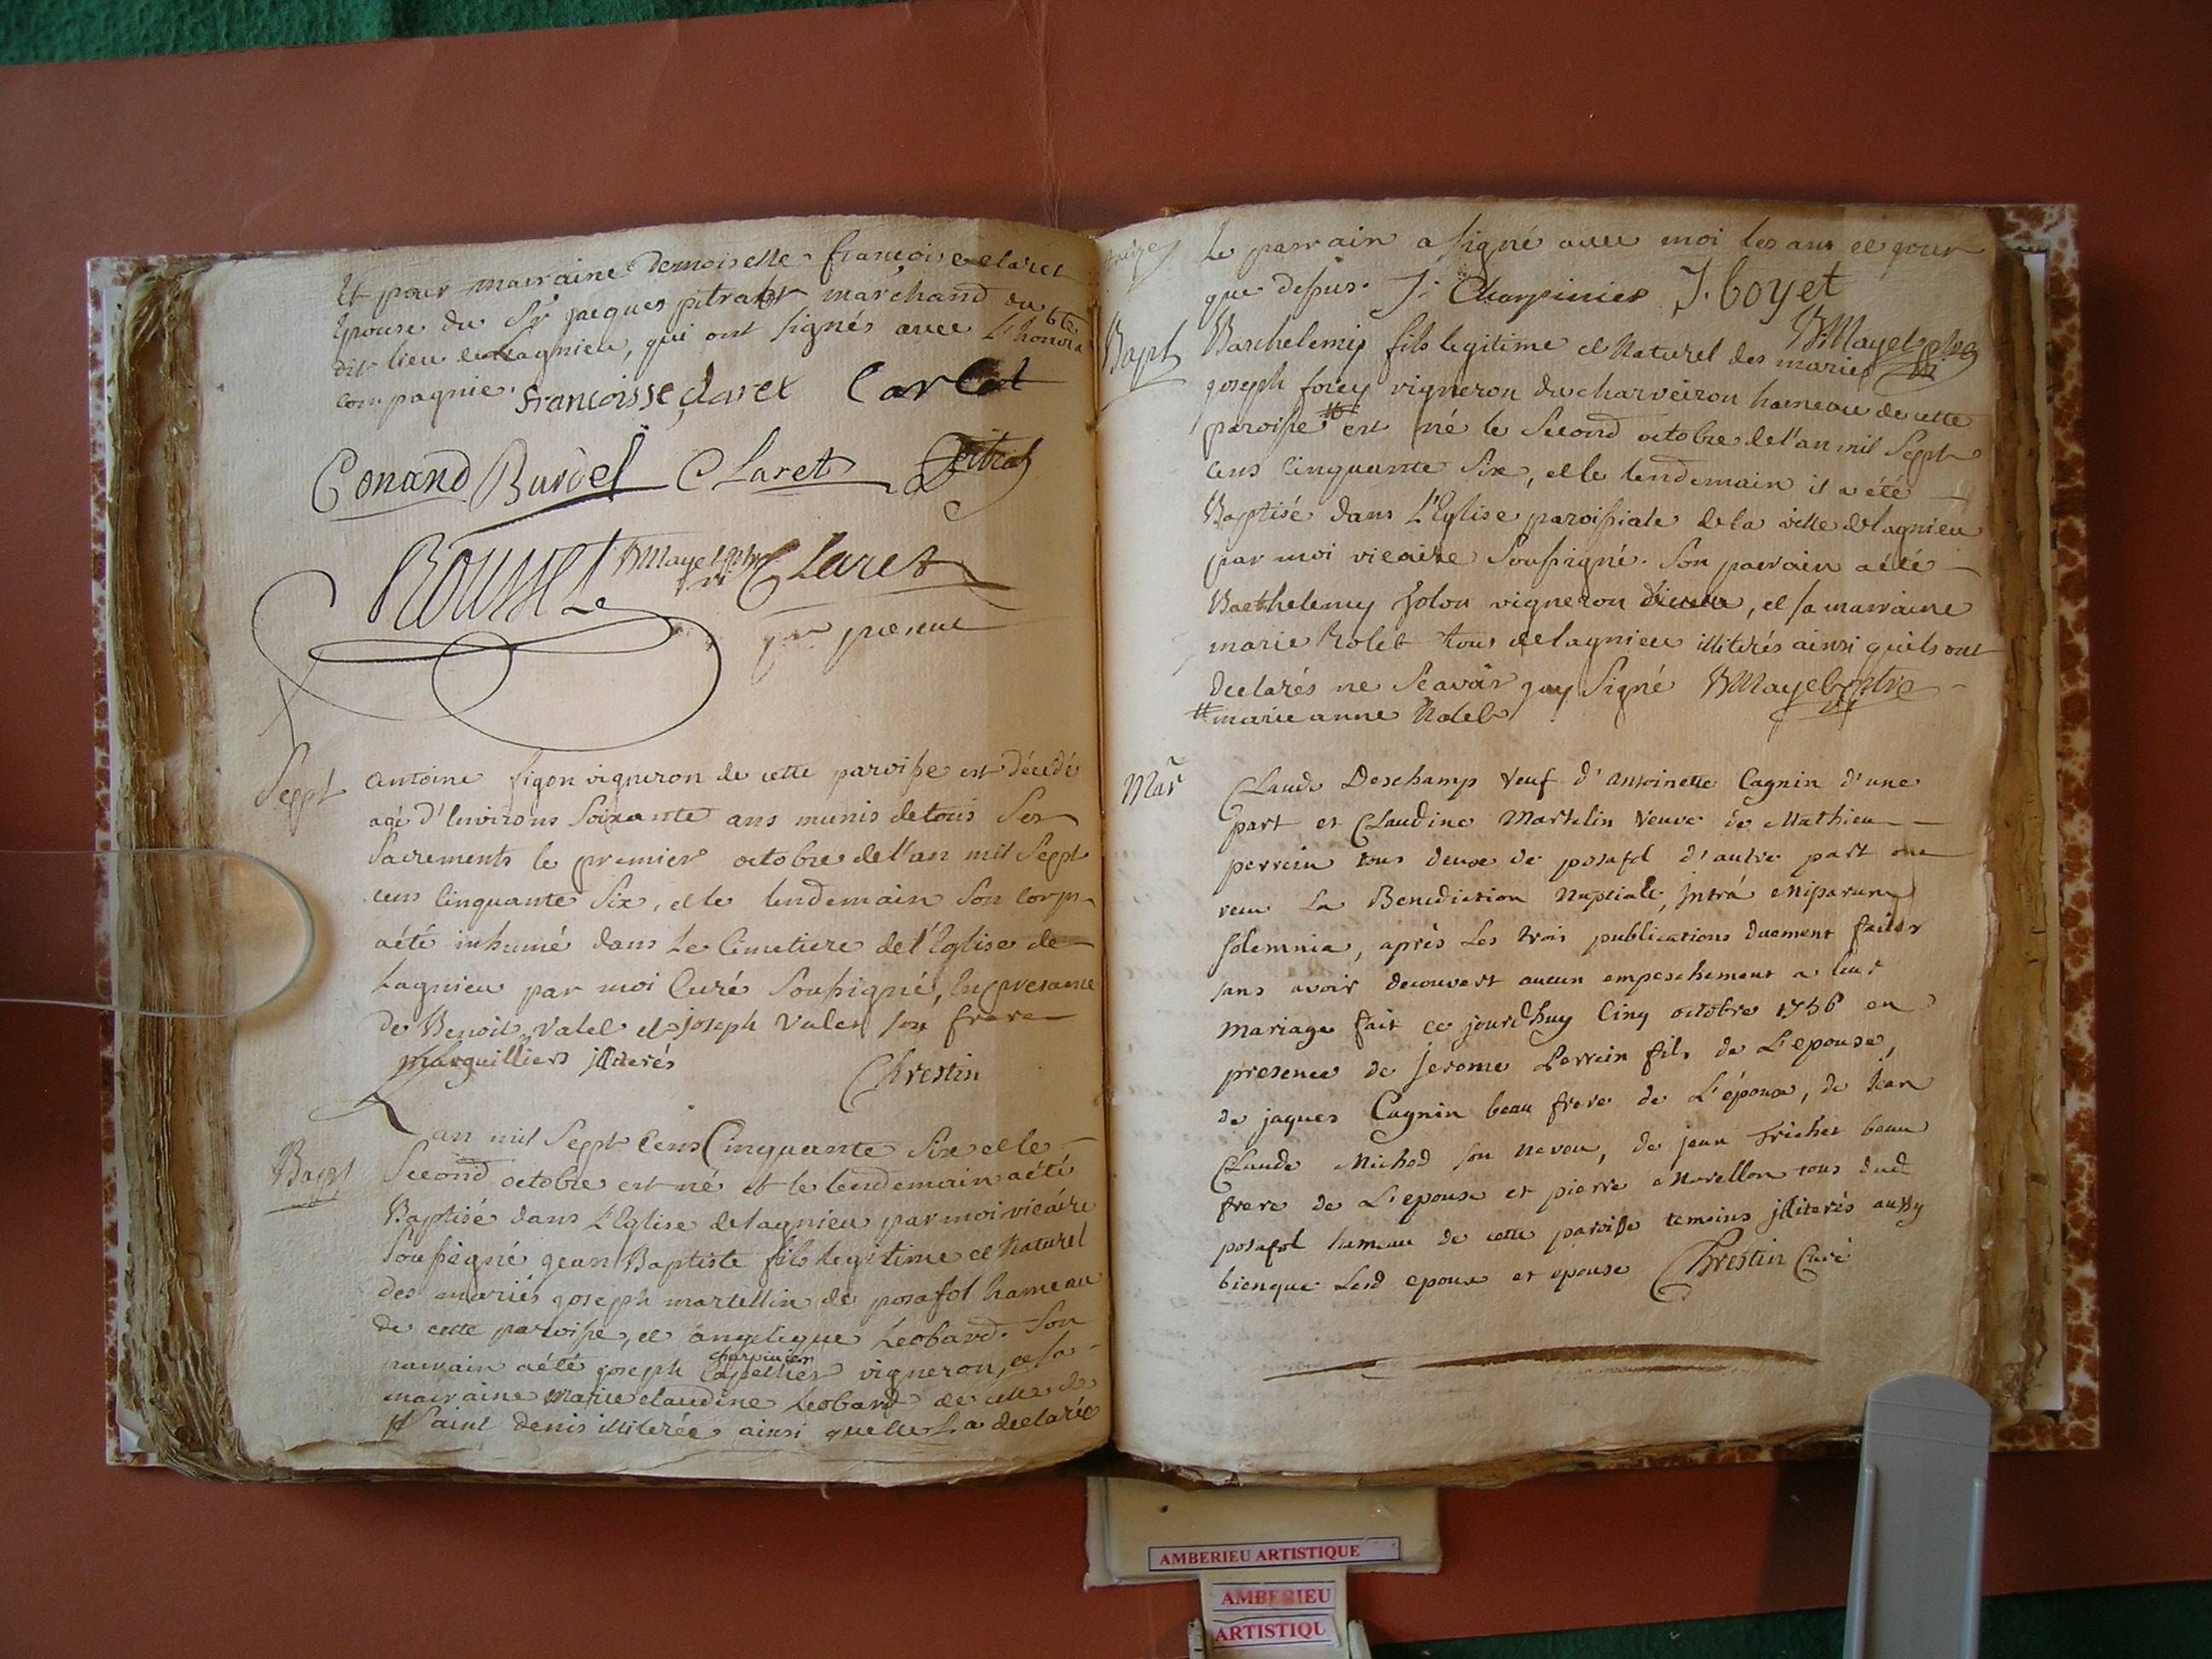 Et pour marraine Demoiselle françoise claret
Epouse du Sr jacques pitrat marchand du
dit lieu de Lagnieu, qui ont signés avec L'honora
ble
compagnie.
francoisse claret Carlot
Conand Burdel Claret Pitrat
Rousset BMayet ptre Claret
vi
Sept
antoine figon vigneron de cette paroisse est décédé
agé d'Environs Soixante ans munis de tous Ses
Sacrements le premier octobre de l'an mil Sept
cens Cinquante Six, et le lendemain Son corps
a été inhumé dans Le Cimetiere de l'Eglise de
Lagnieu par moi Curé Soussigné, En presence
de Benoit Valet et joseph Valet son frere
Marguilliers jlliterés Chrestin
Bapt
Lan mil Sept Cens Cinquante Six et le
Second octobre est né et le lendemain a été
Baptisé dans L'Eglise de lagnieu par moi vicaire
Soussigné jean Baptiste fils legitime et Naturel
des mariés joseph martellin de posafol hameau
de cette paroisse, et angelique Leobard. Son
parrain a été joseph Capellier vigneron, et sa
charpinier
marraine Marie claudine Leobard de celle de
Saint denis illiterée ainsi quelle La declarée
Le parrain a signé avec moi les ans et jour
que dessus. J: Charpinier J. Coyet
BMayet ptre
vi
Bapt
Barthelemy fils legitime et Naturel des mariés
joseph forey vigneron du charveiron hameau de cette
paroisse # est né le Second octobre de l'an mil Sept
cens Cinquante Six, et le lendemain il a été
Baptisé dans L'Eglise paroissiale de la ville de lagnieu
par moi vicaire Soussigné. Son parrain a été
Barthelemy Jolon vigneron, et sa marraine
marie Rolet tous de lagnieu illiterés ainsi quils ont
declarés ne Scavoir quy Signé BMayet ptre
vi
# marie anne Nodet
Mar
Claude Deschamp veuf d'Antoinette Cagnin d'une
part et Claudine Martelin veuve de Mathieu
perrein tous deux de posafol d'autre part ont
recu La Benediction Nuptiale, Intrá Misparum
solemnia, après Les trois publications duement faites
sans avoir decouvert aucun empeschement a leur
mariage fait ce jourdhuy Cinq octobre 1756 en
presence de Jerome Perrein fils de L'epouse,
de jaques Cagnin beau frere de L'époux, de jean
Claude Michod son neveu, de jean Trichet beau
frere de L'epouse et pierre Morellon tous dud
posafol hameau de cette paroisse temoins jlliterés aussy
bienque Lesd epoux et epouse Chrestin Curé
AMBERIEU ARTISTIQUE
AMBERIEU
ARTISTIQU